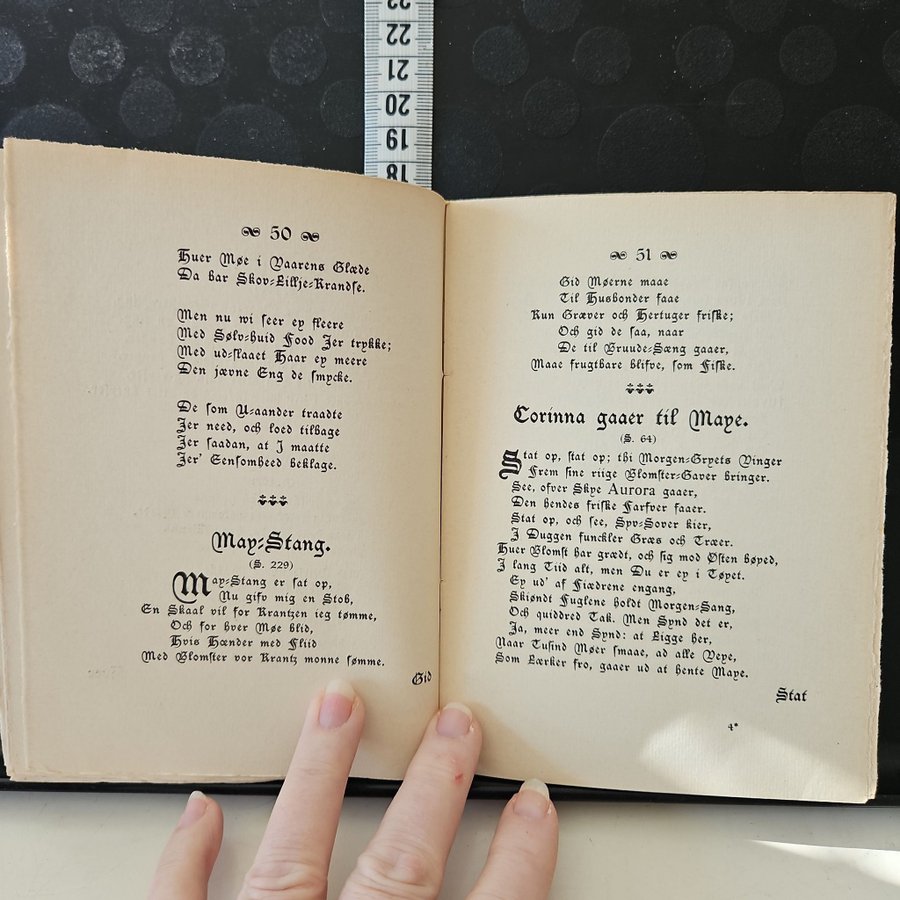 23
22
21
20
19
18
50
Huer Møe i Vaarens Glæde
Da bar Skov-Lillje-Krandse.
Men nu wi seer ey fleere
Med Sølv-huid Food Jer trykke;
Med ud-slaaet Haar ey meere
Den jævne Eng de smycke.
De som U-aander traadte
Jer need, och loed tilbage
Jer saadan, at I maatte
Jer' Eensomheed beklage.
May-Stang.
(S. 229)
May-Stang er sat op,
Nu gifv mig en Stob,
En Skaal vil for Krantzen ieg tømme,
Och for hver Møe blid,
Hvis Hænder med Fliid
Med Blomster vor Krantz monne sømme.
Gid
51
Gid Møerne maae
Til Husbonder faae
Kun Græver och Hertuger friske;
Och gid de saa, naar
De til Bruude-Sæng gaaer,
Maae frugtbare blifve, som Fiske.
Corinna gaaer til Maye.
(S. 64)
Stat op, stat op; thi Morgen-Gryets Vinger
Frem sine riige Blomster-Gaver bringer.
See, ofver Skye Aurora gaaer,
Den hendes friske Farfver faaer.
Stat op, och see, Syv-Sover kier,
I Duggen funckler Græs och Træer.
Huer Blomst har grædt, och sig mod Østen bøyed,
I lang Tiid alt, men Du er ey i Tøyet.
Ey ud' af Fiædrene engang,
Skiøndt Fuglene holdt Morgen-Sang,
Och quiddred Tak. Men Synd det er,
Ja, meer end Synd: at Ligge her,
Naar Tusind Møer smaae, ad alle Veye,
Som Lærker fro, gaaer ud at hente Maye.
Stat
4*